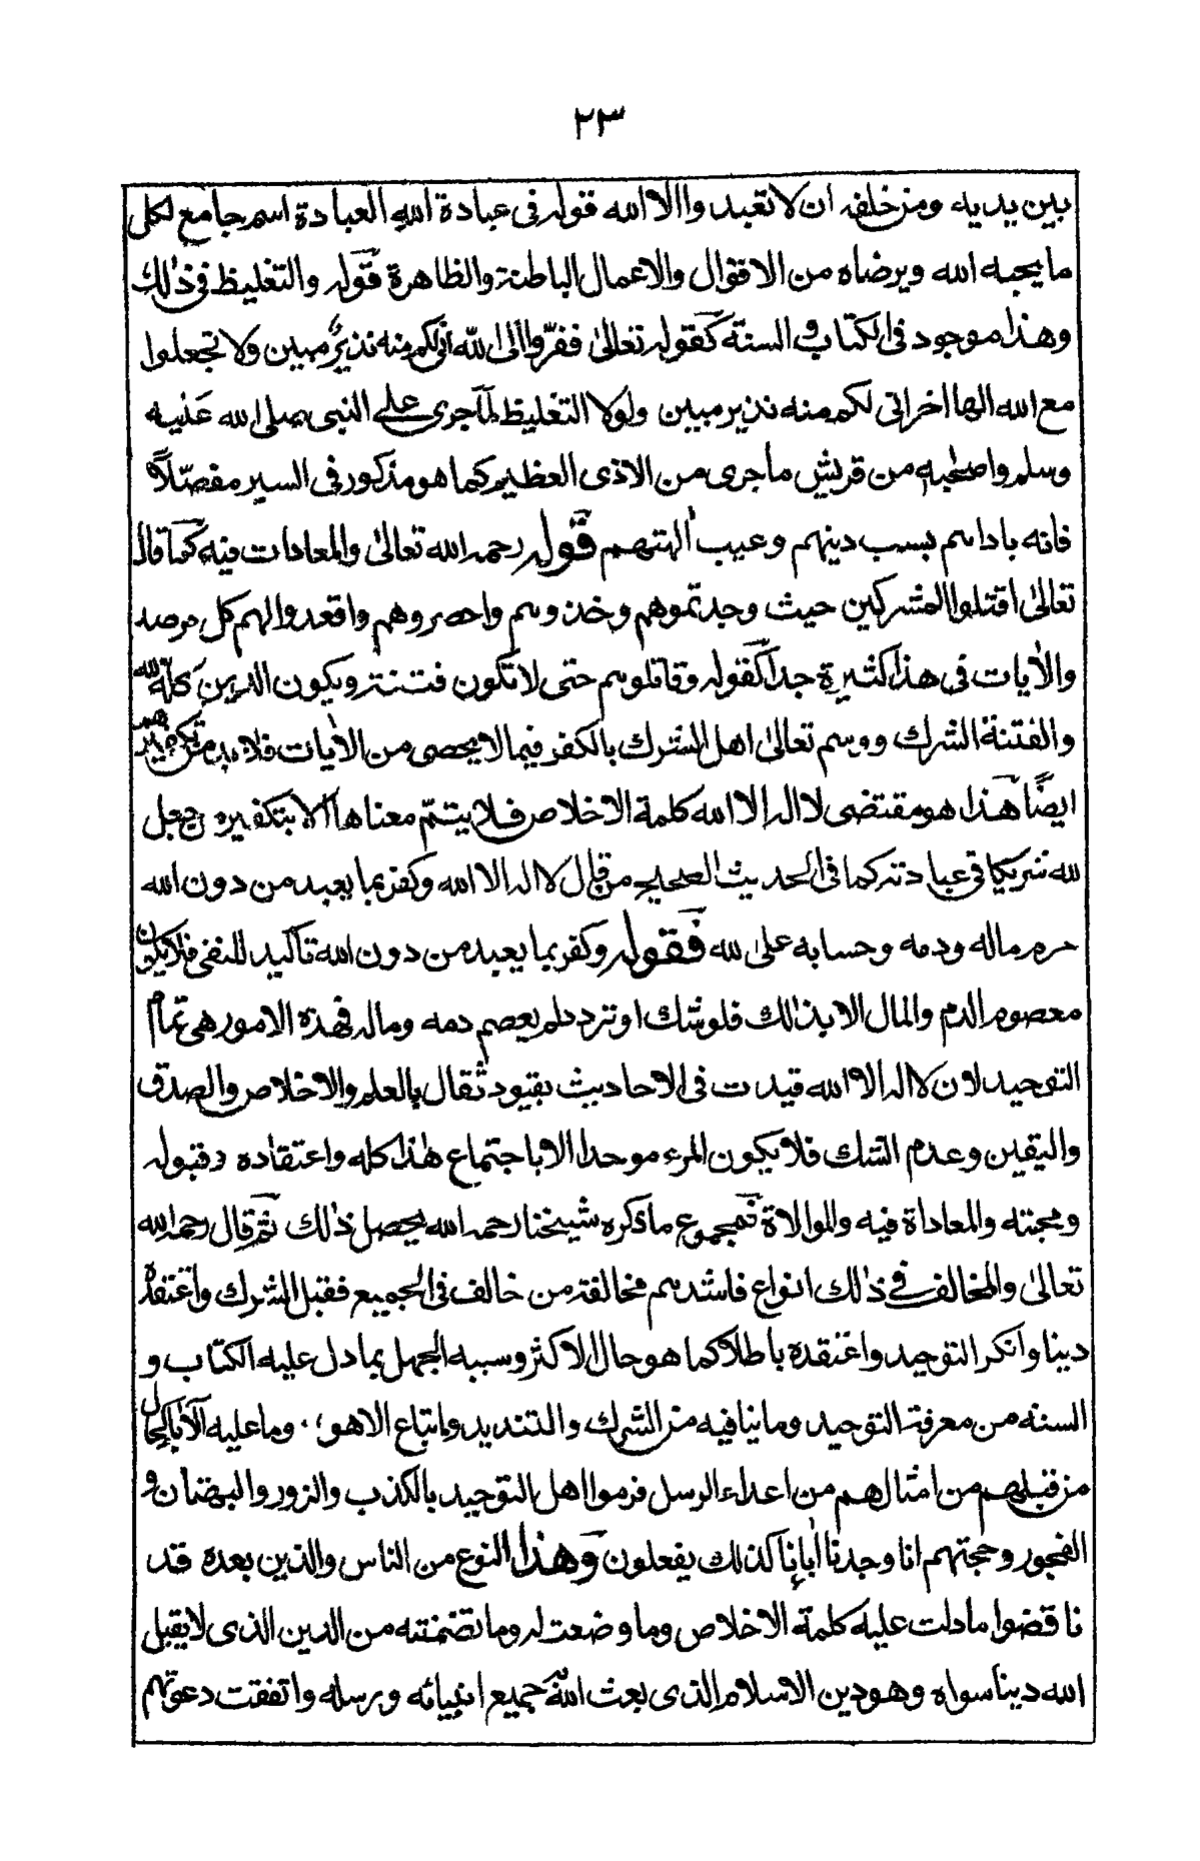 ٢٣
بين يديه ومن خلفه ان لا تعبدوا الا الله قوله في عبادة الله العبادة اسم جامع لكل
ما يحبه الله ويرضاه من الاقوال والاعمال الباطنة والظاهرة قوله والتغليظ في ذلك
وهذا موجود في الكتاب والسنة كقوله تعالى ففرّوا الى الله انى لكم منه نذيرٌ مبين ولا تجعلوا
مع الله الها اخر انى لكم منه نذير مبين ولولا التغليظ لما جرى على النبى صلى الله عَليه
وسلم واصحٰبه من قريش ما جرى من الاذى العظيم كما هو مذكور فى السير مفصّلاً
فانه باداهم بسب دينهم وعيب اٰلهتهم قوله رحمه الله تعالىٰ والمعادات فيه كما قال
تعالىٰ اقتلوا المشركين حيث وجدتموهم وخذوهم واحصروهم واقعدوا لهم كل مرصد
والاٰيات فى هذا كثيرة جدا كقوله وقاتلوهم حتى لا تكون فتنة ويكون الدين كلّه لله
والفتنة الشرك ووسم تعالىٰ اهل الشرك بالكفر فيما لا يحصى من الاٰيات فلا بد من تكفيرهم
ايضًا هذا هو مقتضى لا اله الا الله كلمة الاخلاص فلا يتمّ معناها الا بتكفير من جعل
لله شريكا فى عبادته كما فى الحديث الصحيح من قال لا اله الا الله وكفر بما يعبد من دون الله
حرم ماله ودمه وحسابه على لله فقوله وكفر بما يعبد من دون الله تاكيد للنفى فلا يكون
معصوم الدم والمال الا بذٰلك فلو شك او تردد لم يعصم دمه وماله فهذه الامور هى تمام
التوحيد لان لا اله الا الله قيدت فى الاحاديث بقيود ثقال بالعلم والاخلاص والصدق
واليقين وعدم الشك فلا يكون المرء موحدا الا باجتماع هٰذا كله واعتقاده وقبوله
ومحبته والمعاداة فيه والموالاة فمجموع ما ذكره شيخنا رحمه الله يحصل ذٰلك ثم قال رحمه الله
تعالىٰ والمخالف فى ذٰلك انواع فاشدهم مخالفة من خالف فى الجميع فقبل الشرك واعتقده
دينا وانكر التوحيد واعتقده باطلا كما هو حال الاكثر وسببه الجهل بما دل عليه الكتاب و
السنه من معرفة التوحيد وما ينافيه من الشرك والتنديد واتباع الاهواء وما عليه الاٰباء كحال
من قبلهم من امثالهم من اعداء الرسل فرموا اهل التوحيد بالكذب والزور والبهتان و
الفجور وحجتهم انا وجدنا اٰباءنا كذلك يفعلون وهذا النوع من الناس والذين بعده قد
ناقضوا ما دلت عليه كلمة الاخلاص وما وضعت له وما تضمنته من الدين الذى لا يقبل
الله دينا سواه وهو دين الاسلام الذى بعث الله جميع انبيائه ورسله واتفقت دعوتهم